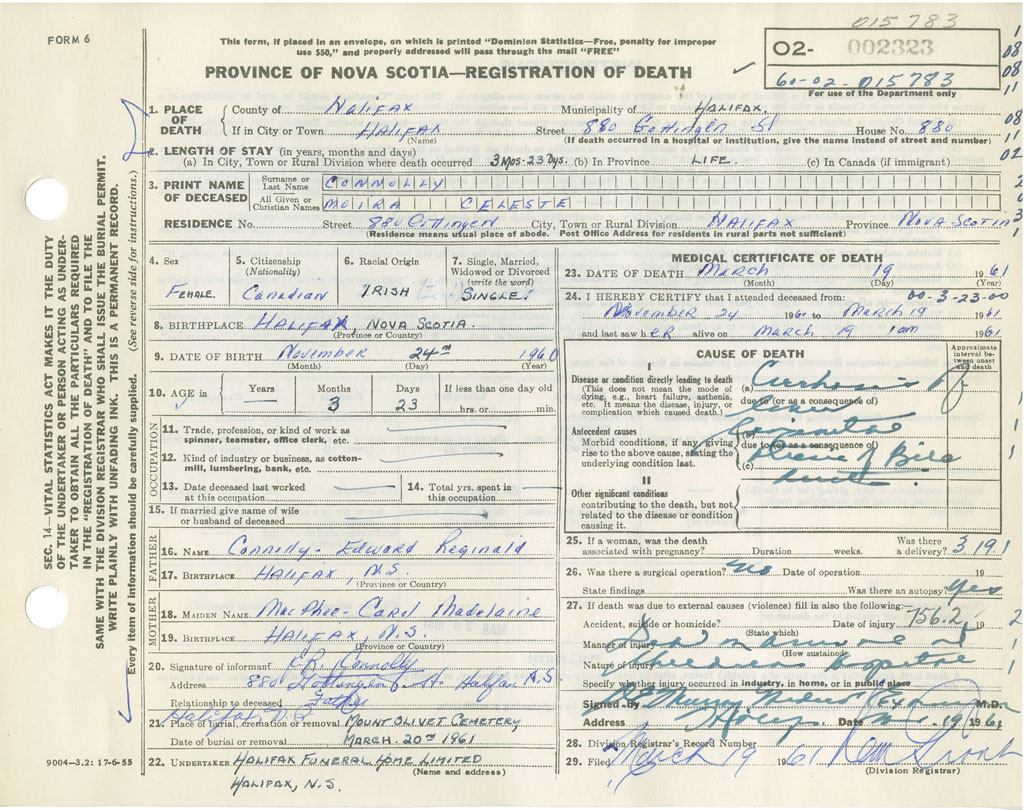 015783
FORM 6
This form, if placed in an envelope, on which is printed "Dominion Statistics—Free, penalty for improper
use $50," and properly addressed will pass through the mail "FREE"
PROVINCE OF NOVA SCOTIA—REGISTRATION OF DEATH
02- 002323
60-02-015783
For use of the Department only
SEC. 14—VITAL STATISTICS ACT MAKES IT THE DUTY
OF THE UNDERTAKER OR PERSON ACTING AS UNDER-
TAKER TO OBTAIN ALL THE PARTICULARS REQUIRED
IN THE "REGISTRATION OF DEATH" AND TO FILE THE
SAME WITH THE DIVISION REGISTRAR WHO SHALL ISSUE THE BURIAL PERMIT.
WRITE PLAINLY WITH UNFADING INK. THIS IS A PERMANENT RECORD.
Every item of information should be carefully supplied. (See reverse side for instructions.)
1. PLACE OF DEATH
County of Halifax Municipality of HALIFAX.
If in City or Town HALIFAX Street 880 Gottingen St House No. 880
(Name) (If death occurred in a hospital or institution, give the name instead of street and number)
2. LENGTH OF STAY (in years, months and days)
(a) In City, Town or Rural Division where death occurred 3 Mos-23 Dys. (b) In Province LIFE. (c) In Canada (if immigrant)
3. PRINT NAME OF DECEASED
Surname or Last Name CONNOLLY
All Given or Christian Names MOIRA CELESTE
RESIDENCE No. Street 880 Gottingen City, Town or Rural Division HALIFAX Province NOVA SCOTIA
(Residence means usual place of abode. Post Office Address for residents in rural parts not sufficient)
4. Sex FEMALE.
5. Citizenship (Nationality) Canadian
6. Racial Origin IRISH
7. Single, Married, Widowed or Divorced (write the word) SINGLE.
8. BIRTHPLACE HALIFAX, NOVA SCOTIA.
(Province or Country)
9. DATE OF BIRTH November 24TH 1960
(Month) (Day) (Year)
10. AGE in Years Months 3 Days 23 If less than one day old hrs. or min.
OCCUPATION
11. Trade, profession, or kind of work as
spinner, teamster, office clerk, etc.
12. Kind of industry or business, as cotton-
mill, lumbering, bank, etc.
13. Date deceased last worked
at this occupation
14. Total yrs. spent in
this occupation
15. If married give name of wife
or husband of deceased
FATHER
16. NAME Connolly- Edward Reginald
17. BIRTHPLACE HALIFAX, N.S.
(Province or Country)
MOTHER
18. MAIDEN NAME MacPhee- Carol Madelaine
19. BIRTHPLACE HALIFAX, N.S.
(Province or Country)
20. Signature of informant E.R. Connolly
Address 880 Gottingen St Halifax N.S
Relationship to deceased Father
Halifax N.S
21. Place of burial, cremation or removal MOUNT OLIVET CEMETERY
Date of burial or removal MARCH 20TH 1961
22. UNDERTAKER HALIFAX FUNERAL HOME LIMITED
(Name and address)
HALIFAX, N.S.
9004—3.2: 17-6-55
MEDICAL CERTIFICATE OF DEATH
23. DATE OF DEATH March 19 1961
(Month) (Day) (Year)
00-3-23-00
24. I HEREBY CERTIFY that I attended deceased from:
November 24 1960 to March 19 1961
and last saw her alive on March 19 1961
CAUSE OF DEATH
Approximate interval between onset and death
I
Disease or condition directly leading to death
(This does not mean the mode of
dying, e.g., heart failure, asthenia,
etc. It means the disease, injury, or
complication which caused death.)
(a) Cirrhosis of
due to (or as a consequence of)
Liver
Antecedent causes
Morbid conditions, if any, giving
rise to the above cause, stating the
underlying condition last.
due to (or as a consequence of)
(c) Bile
II
Other significant conditions
contributing to the death, but not
related to the disease or condition
causing it.
25. If a woman, was the death
associated with pregnancy? Duration weeks. Was there
a delivery? 3 19 1
26. Was there a surgical operation? No Date of operation 19
State findings Was there an autopsy? Yes
27. If death was due to external causes (violence) fill in also the following:—
Accident, suicide or homicide? Date of injury 19 756.2
(State which)
Manner of injury Dead on arrival at
(How sustained)
Nature of injury Childrens Hospital
Specify whether injury occurred in industry, in home, or in public place
Signed by M.D.
Address Date 19 1961
28. Division Registrar's Record Number
29. Filed March 19 1961
(Division Registrar)